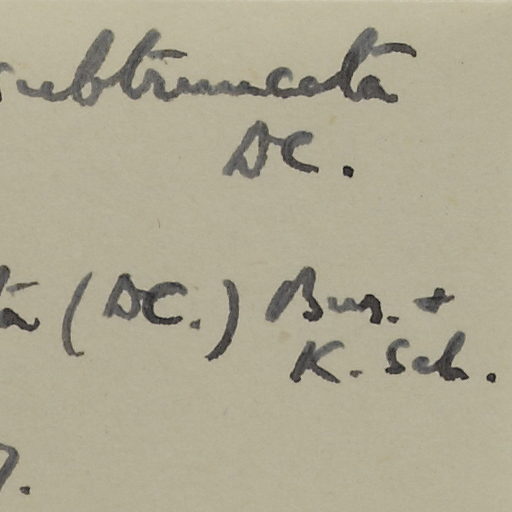 subtruncata
DC.
ta (DC.) Bur. +
K. Sch.